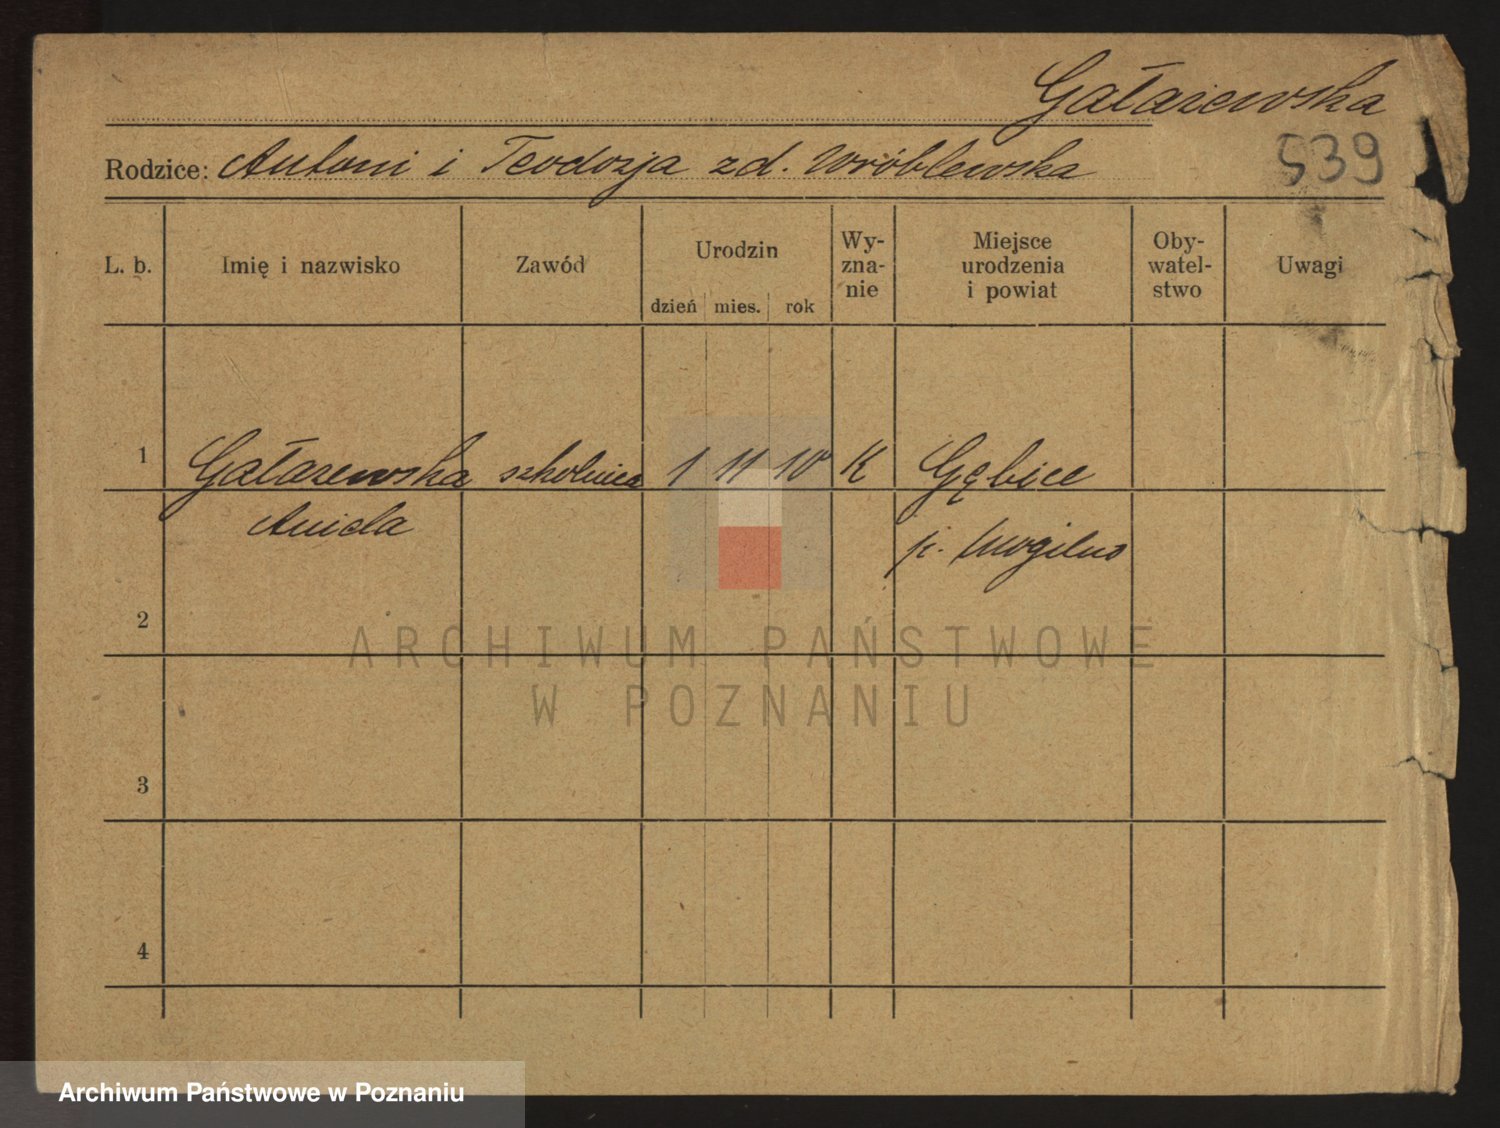 Gałazewska
Rodzice: Antoni i Teodozja zd. Wróblewska
539
L. b. Imię i nazwisko Zawód Urodzin dzień mies. rok Wy-zna-nie Miejsce urodzenia i powiat Oby-watel-stwo Uwagi
1 Gałazewska szkolnica 1 11 10 K Gębice
Aniela p. Mogilno
2
ARCHIWUM PAŃSTWOWE
W POZNANIU
3
4
Archiwum Państwowe w Poznaniu